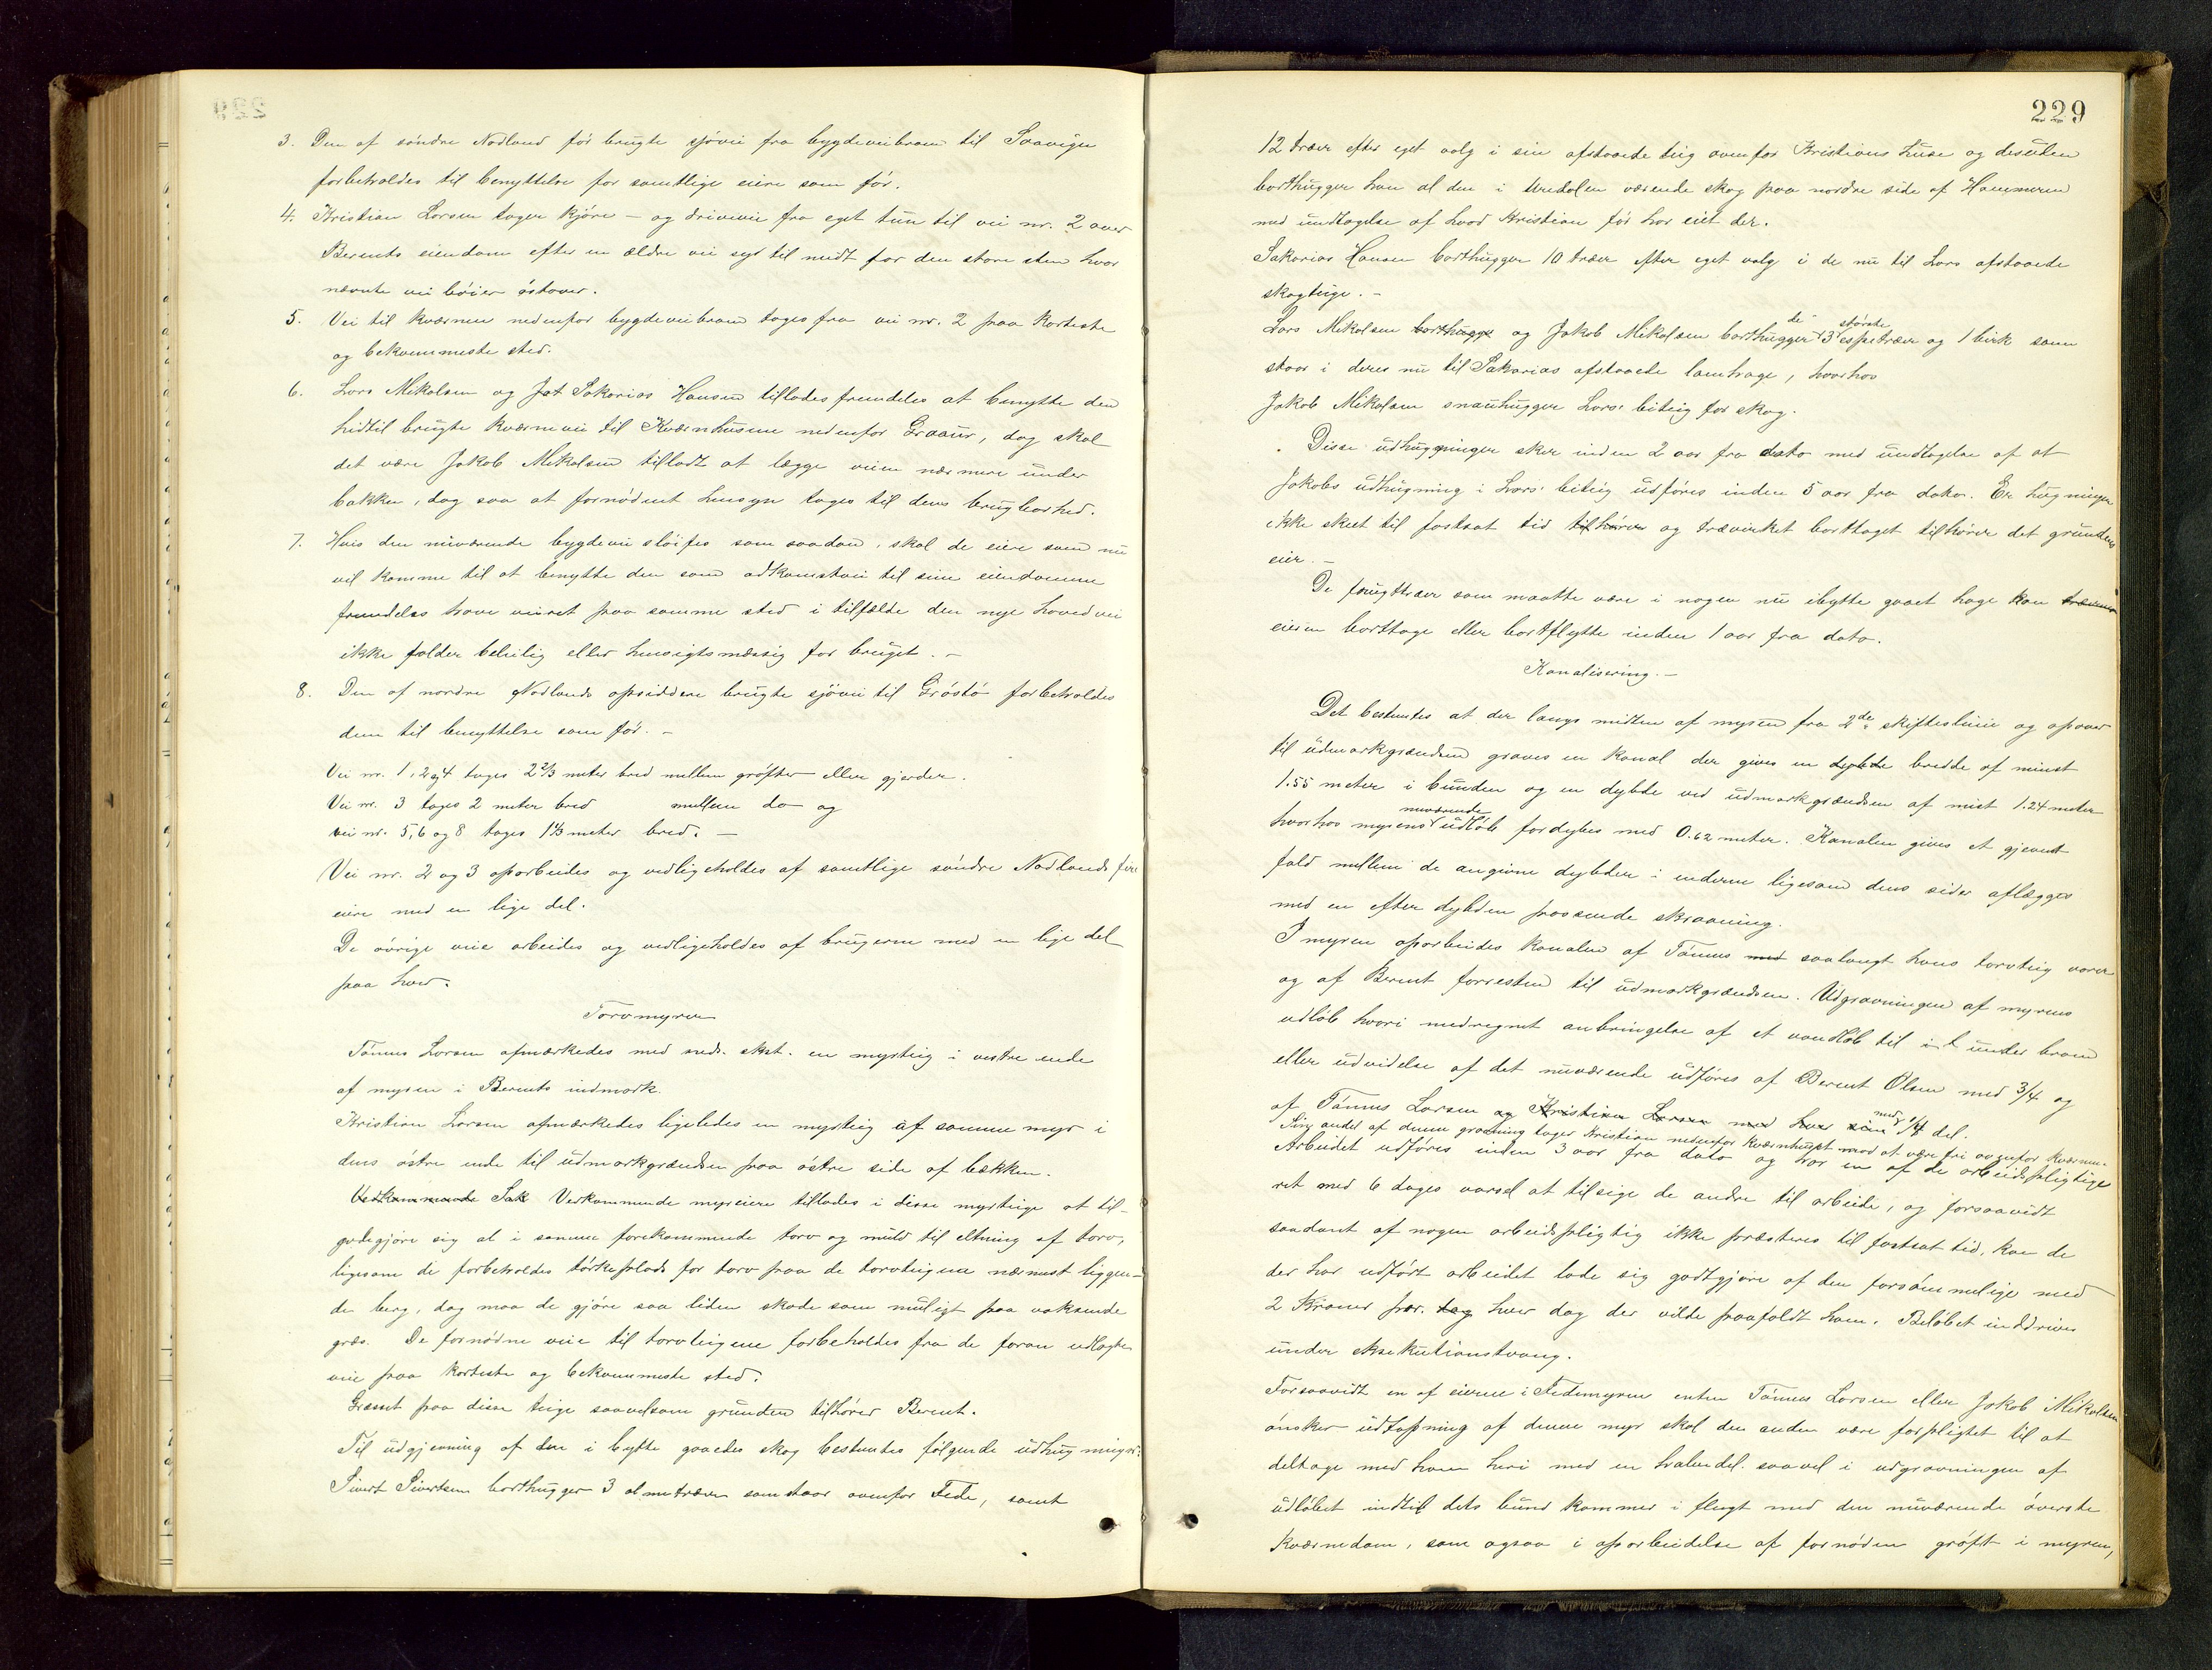 3. Den af søndre Nodland før brugte sjøvei fra bygdeveibroen til Saavigen
forbeholdes til benyttelse for samtlige eiere som før.
4. Kristian Larsen tager kjøre- og drivevei fra eget tun til vei nr. 2 over
Berents eiendom efter en ældre vei syd til midt for den store sten hvor
nævnte vei bøier østover.
5. Vei til kværnen nedenfor bygdeveibroen tages fra vei nr. 2 paa korteste
og bekvemmeste sted.
6. Lars Mikalsen og Jat Sakarias Hansen tillades fremdeles at benytte den
hidtil brugte kværnevei til Kværnhusene nedenfor Graaur, dog skal
det være Jakob Mikalsen tilladt at lægge veien nærmere under
bakken, dog saa at fornødent hensyn tages til dens brugbarhed.
7. Hvis den nuværende bygdevei sløifes som saadan, skal de eiere som nu
vil komme til at benytte den som adkomstvei til sine eiendomme
fremdeles have veiret paa samme sted i tilfælde den nye hovedvei
ikke falder beleilig eller hensigtsmæssig for bruget. -
8. Den af nordre Nodlands opsiddere brugte sjøvei til Grøstø forbeholdes
dem til benyttelse som før. -
Vei nr. 1, 2 og 4 tages 2 2/3 meter bred mellem grøfter eller gjerder.
Vei nr. 3 tages 2 meter bred mellem do og
vei nr. 5, 6 og 8 tages 1 1/3 meter bred. -
Vei nr. 2 og 3 oparbeides og vedligeholdes af samtlige søndre Nodlands fire
eiere med en lige del.
De øvrige veie arbeides og vedligeholdes af brugerne med en lige del
paa hver.
Torvmyren
Tønnes Larsen afmærkedes med neds. skst. en myrteig i vestre ende
af myren i Berents indmark.
Kristian Larsen afmærkedes ligeledes en myrteig af samme myr i
dens østre ende til udmarkgrændsen paa østre side af bækken.
Vedkommende Sak Vedkommende myreiere tillades i disse myrteige at til-
godegjøre sig al i samme forekommende torv og muld til eltning af torv,
ligesom de forbeholdes tørkeplads for torv paa de torvteigene nærmest liggen-
de berg, dog maa de gjøre saa liden skade som muligt paa voksende
græs. De fornødne veie til torvteigene forbeholdes fra de foran udlagte
veie paa korteste og bekvemmeste sted.
Græsset paa disse teige saavelsom grunden tilhører Berent.
Til udgjevning af den i bytte gaaede skog bestemtes følgende udhugninger:
Sivert Sivertsen borthugger 3 almetræer som staar ovenfor Fede, samt
229
12 træer efter eget valg i sin afstaaede teig ovenfor Kristians huse og desuden
borthugger han al den i Uredalen værende skog paa nordre side af Hammeren
med undtagelse af hvad Kristian før har eiet der.
Sakarias Hansen borthugger 10 træer efter eget valg i de nu til Lars afstaaede
skogteige. -
Lars Mikalsen borthugge og Jakob Mikalsen borthugger de 3 største espetræer og 1 birk som
staar i deres nu til Sakarias afstaaede lamhage, hvorhos
Jakob Mikalsen snauhugger Lars' biteig for skog.
Disse udhugninger sker inden 2 aar fra dato med undtagelse af at
Jakobs udhugning i Lars' biteig udføres inden 5 aar fra dato. Er hugningen
ikke skeet til fastsat tid tilhører og trævirket borttaget tilhører det grundens
eier. -
De frugttræer som maatte være i nogen nu ibytte gaaet hage kan
eieren borttage eller bortflytte inden 1 aar fra dato.
Kanalisering. -
Det bestemtes at der langs midten af myren fra 2de skifteslinie og opover
til udmarkgrændsen graves en kanal der gives en dybde bredde af minst
1.55 meter i bunden og en dybde ved udmarkgrændsen af mist 1.24 meter
hvorhos myrens nuværende udløb fordybes med 0.62 meter. Kanalen gives et gjevnt
fald mellem de angivne dybder i enderne ligesom dens sider aflægges
med en efter dybden passende skraaning.
I myren oparbeides kanalen af Tønnes med saalangt hans torvteig varer
og af Berent forresten til udmarkgrændsen. Udgravningen af myrens
udløb hvori medregnet anbringelse af et vandløb til under broen
eller udvidelse af det nuværende udføres af Berent Olsen med 3/4 og
af Tønnes Larsen og Kristian Larsen med hver sin med 1/4 del.
Sin andel af denne gravning tager Kristian nedenfor kværnhuset mod at være fri ovenfor kværnen.
Arbeidet udføres inden 3 aar fra dato og har en af de arbeidspligtige
ret med 6 dages varsel at tilsige de andre til arbeide, og forsaavidt
saadant af nogen arbeidspligtig ikke præsteres til fastsat tid, kan de
der har udført arbeidet lade sig godtgjøre af den forsømmelige med
2 Kroner pær. dag hver dag der vilde paafaldt ham. Beløbet inddrives
under eksekutionstvang.
Forsaavidt en af eierne i Fedemyren enten Tønnes Larsen eller Jakob Mikalsen
ønsker udtapning af denne myr skal den anden være forpligtet til at
deltage med ham heri med en halvedel saavel i udgravningen af
udløbet indtil dets bund kommer i flugt med den nuværende øverste
Kværnedam, som ogsaa i oparbeidelse af fornøden grøft i myren,